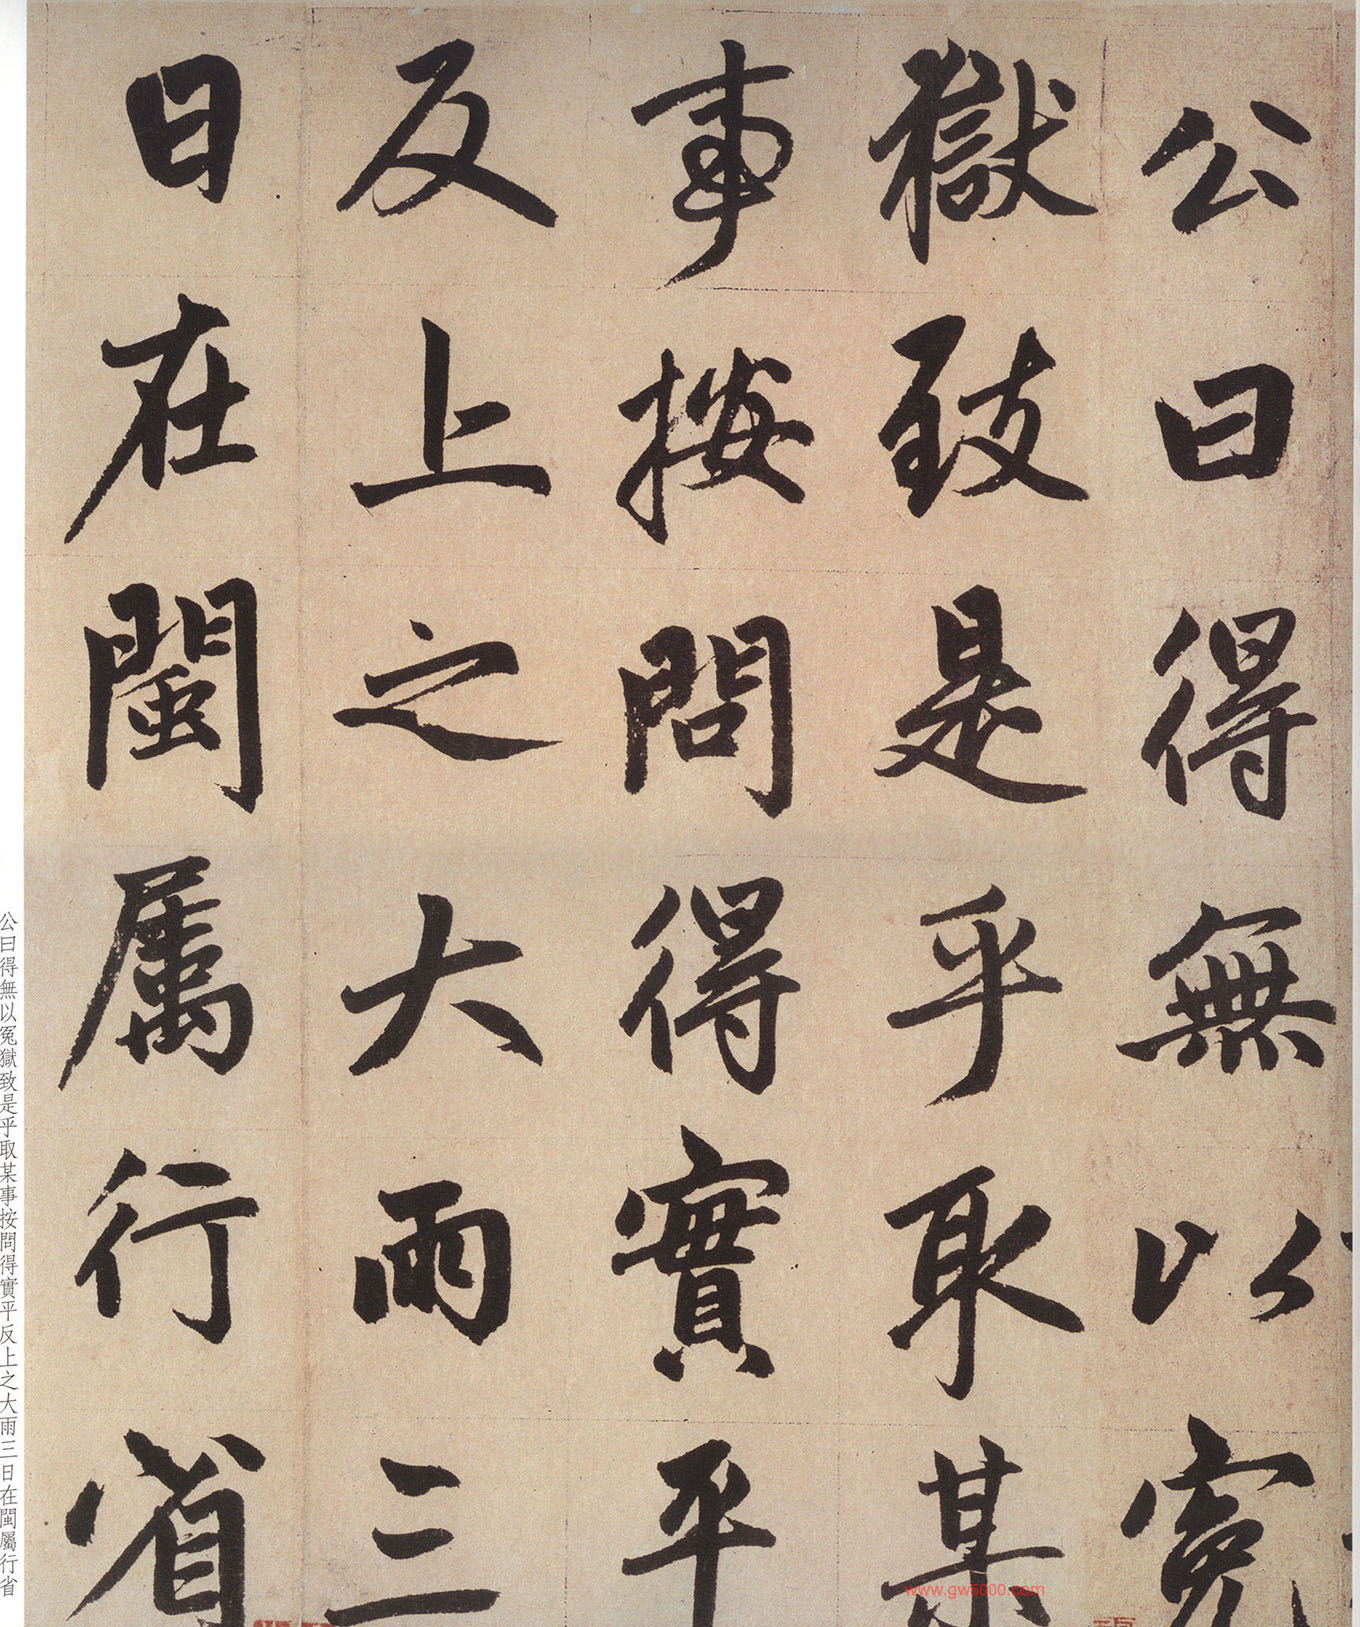 公曰得無以冤
獄致是乎取某
事按問得實平
反上之大雨三
日在閩屬行省
公曰得無以冤獄致是乎取某事按問得實平反上之大雨三日在閩屬行省
www.gw5000.com